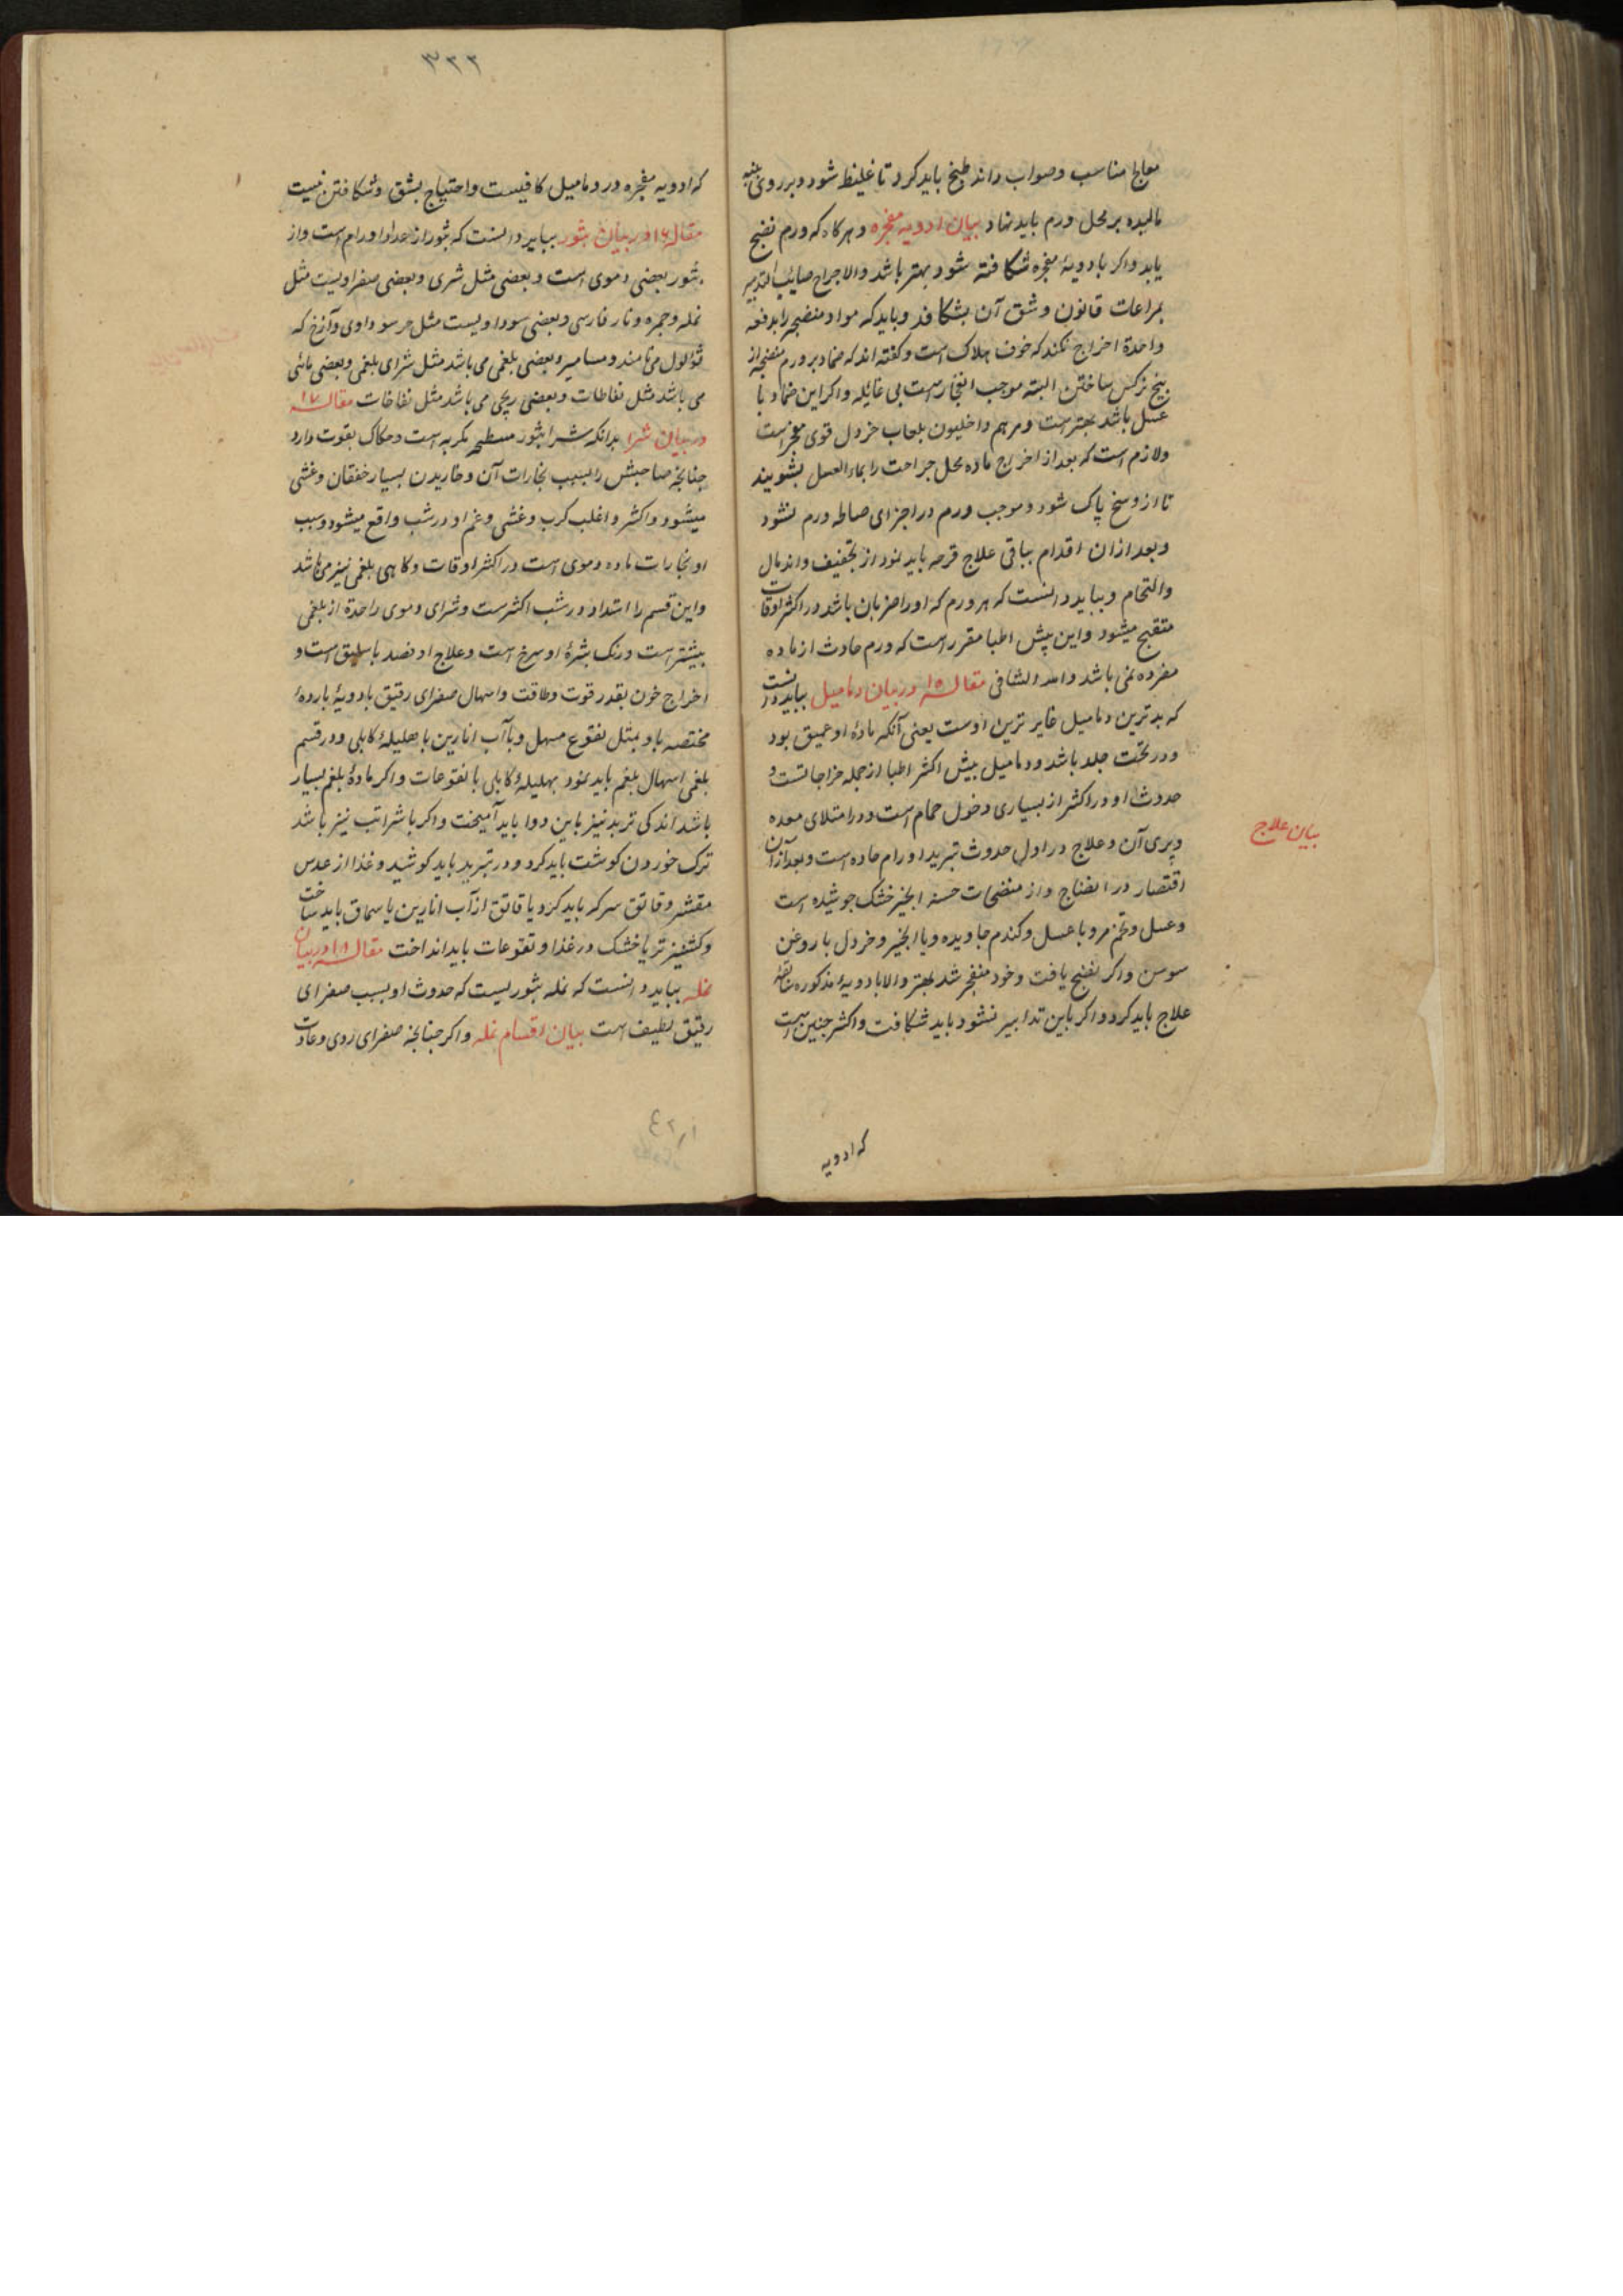 معالج مناسب و صواب داند طبخ باید کرد تا غلیظ شود و بر روی پنبه
مالیده بر محل ورم باید نهاد بیان ادویه مفجره و هرکاه که ورم نضج
یابد و اکر بادویهٔ مفجره شکافته شود بهتر باشد والا جراح صایب التدبیر
بمراعات قانون و شق آن بشکافد و باید که مواد منضجه را بدفعه
واحدة اخراج نکند که خوف هلاک است و کفته اند که ضماد بر ورم منضجه از
بیخ نرکس ساختن البته موجب انفجارست بی غائله و اکر این ضماد با
عسل باشد بهترست و مرهم داخلیون بلعاب خردل قوی مفجرست
و لازم است که بعد از اخراج ماده محل جراحت را بماء العسل بشویند
تا از وسخ پاک شود و موجب ورم در اجزای صالحه ورم نشود
و بعد از ان اقدام بباقی علاج قرحه باید نمود از تجفیف و اندمال
و التحام و بباید دانست که هر ورم که او را ضربان باشد در اکثر اوقات
متقیح میشود و این پیش اطبا مقررست که ورم حادث از ماده
مفرده نمی باشد والله الشافی مقاله ۱۵ در بیان دمامیل بباید دانست
که بدترین دمامیل غایر ترین اوست یعنی آنکه مادهٔ او عمیق بود
و در تحت جلد باشد و دمامیل پیش اکثر اطبا از جمله خراجاتست و
حدوث او در اکثر از بسیاری دخول حمام است و در امتلای معده
و پری آن و علاج در اول حدوث تبرید اورام حاده است و بعد از ان
اقتصار در انضاج و از منضجات حسنه انجیر خشک جوشیده است
و عسل و تخم مرو با عسل و کندم جاویده و یا انجیر و خردل با روغن
سوسن و اکر نضج یافت و خود منفجر شد بهتر والا بادویهٔ مذکوره سابقه
علاج باید کرد و اکر باین تدابیر نشود باید شکافت و اکثر چنین است
بیان علاج
که ادویه
۳۲۲
که ادویه مفجره در دمامیل کافیست و احتیاج بشق و شکافتن نیست
مقاله ۱۶ در بیان بثور بباید دانست که بثور از عداد اورام است و از
بثور بعضی دموی است و بعضی مثل شری و بعضی صفراویست مثل
نمله و جمره و نار فارسی و بعضی سوداویست مثل جرب سوداوی و آزخ که
ثؤلول می نامند و مسامیر و بعضی بلغمی می باشد مثل شرای بلغمی و بعضی مائی
می باشد مثل نفاطات و بعضی ریحی می باشد مثل نفاخات مقاله ۱۷
در بیان شرا بدانکه شرا بثور مسطحه مکربه است و حکاک بقوت دارد
چنانچه صاحبش را بسبب بخارات آن و خاریدن بسیار خفقان و غشی
میشود و اکثر و اغلب کرب و غشی و غم او در شب واقع میشود و سبب
او بخارات ماده دموی است در اکثر اوقات و کاهی بلغمی نیز می باشد
و این قسم را اشتداد در شب اکثرست و شرای دموی را حدة از بلغمی
بیشترست و رنک بشرهٔ او سرخ است و علاج او فصد باسلیق است و
اخراج خون بقدر قوت و طاقت و اسهال صفرای رقیق بادویهٔ باردهٔ
مختصه باو بمثل نقوع مسهل و باآب انارین با هلیلهٔ کابلی و در قسم
بلغمی اسهال بلغم باید نمود بهلیلهٔ کابلی با نقوعات و اکر مادهٔ بلغم بسیار
باشد اندکی تربد نیز باین دوا باید آمیخت و اکر با شراتب نیز باشد
ترک خوردن کوشت باید کرد و در تبرید باید کوشید و غذا از عدس
مقشر و قاتق سرکه باید کرد یا قاتق از آب انارین یا سماق باید ساخت
و کشنیز تر یا خشک در غذا و نقوعات باید انداخت مقاله ۱۸ در بیان
نمله بباید دانست که نمله بثوریست که حدوث او بسبب صفرای
رقیق لطیف است بیان اقسام نمله و اکر چنانچه صفرای ردی و حادت